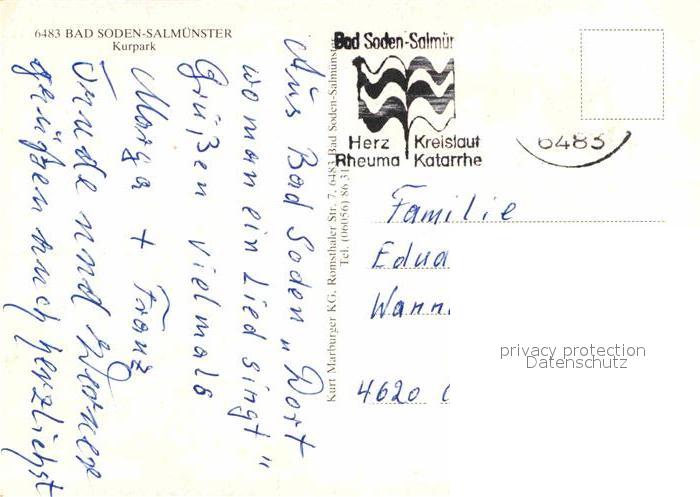 6483 BAD SODEN-SALMÜNSTER
Kurpark
Aus Bad Soden „Dort
wo man ein Lied singt"
Grüßen vielmals
Marga + Franz
Trude und Werner
grüßen auch herzlichst
Kurt Marburger KG, Romsthaler Str. 7, 6483 Bad Soden-Salmünster
Tel. (06056) 86 31
Bad Soden-Salmün
Herz Kreislauf
Rheuma Katarrhe
6483
Familie
Edua
Wann
4620
privacy protection
Datenschutz